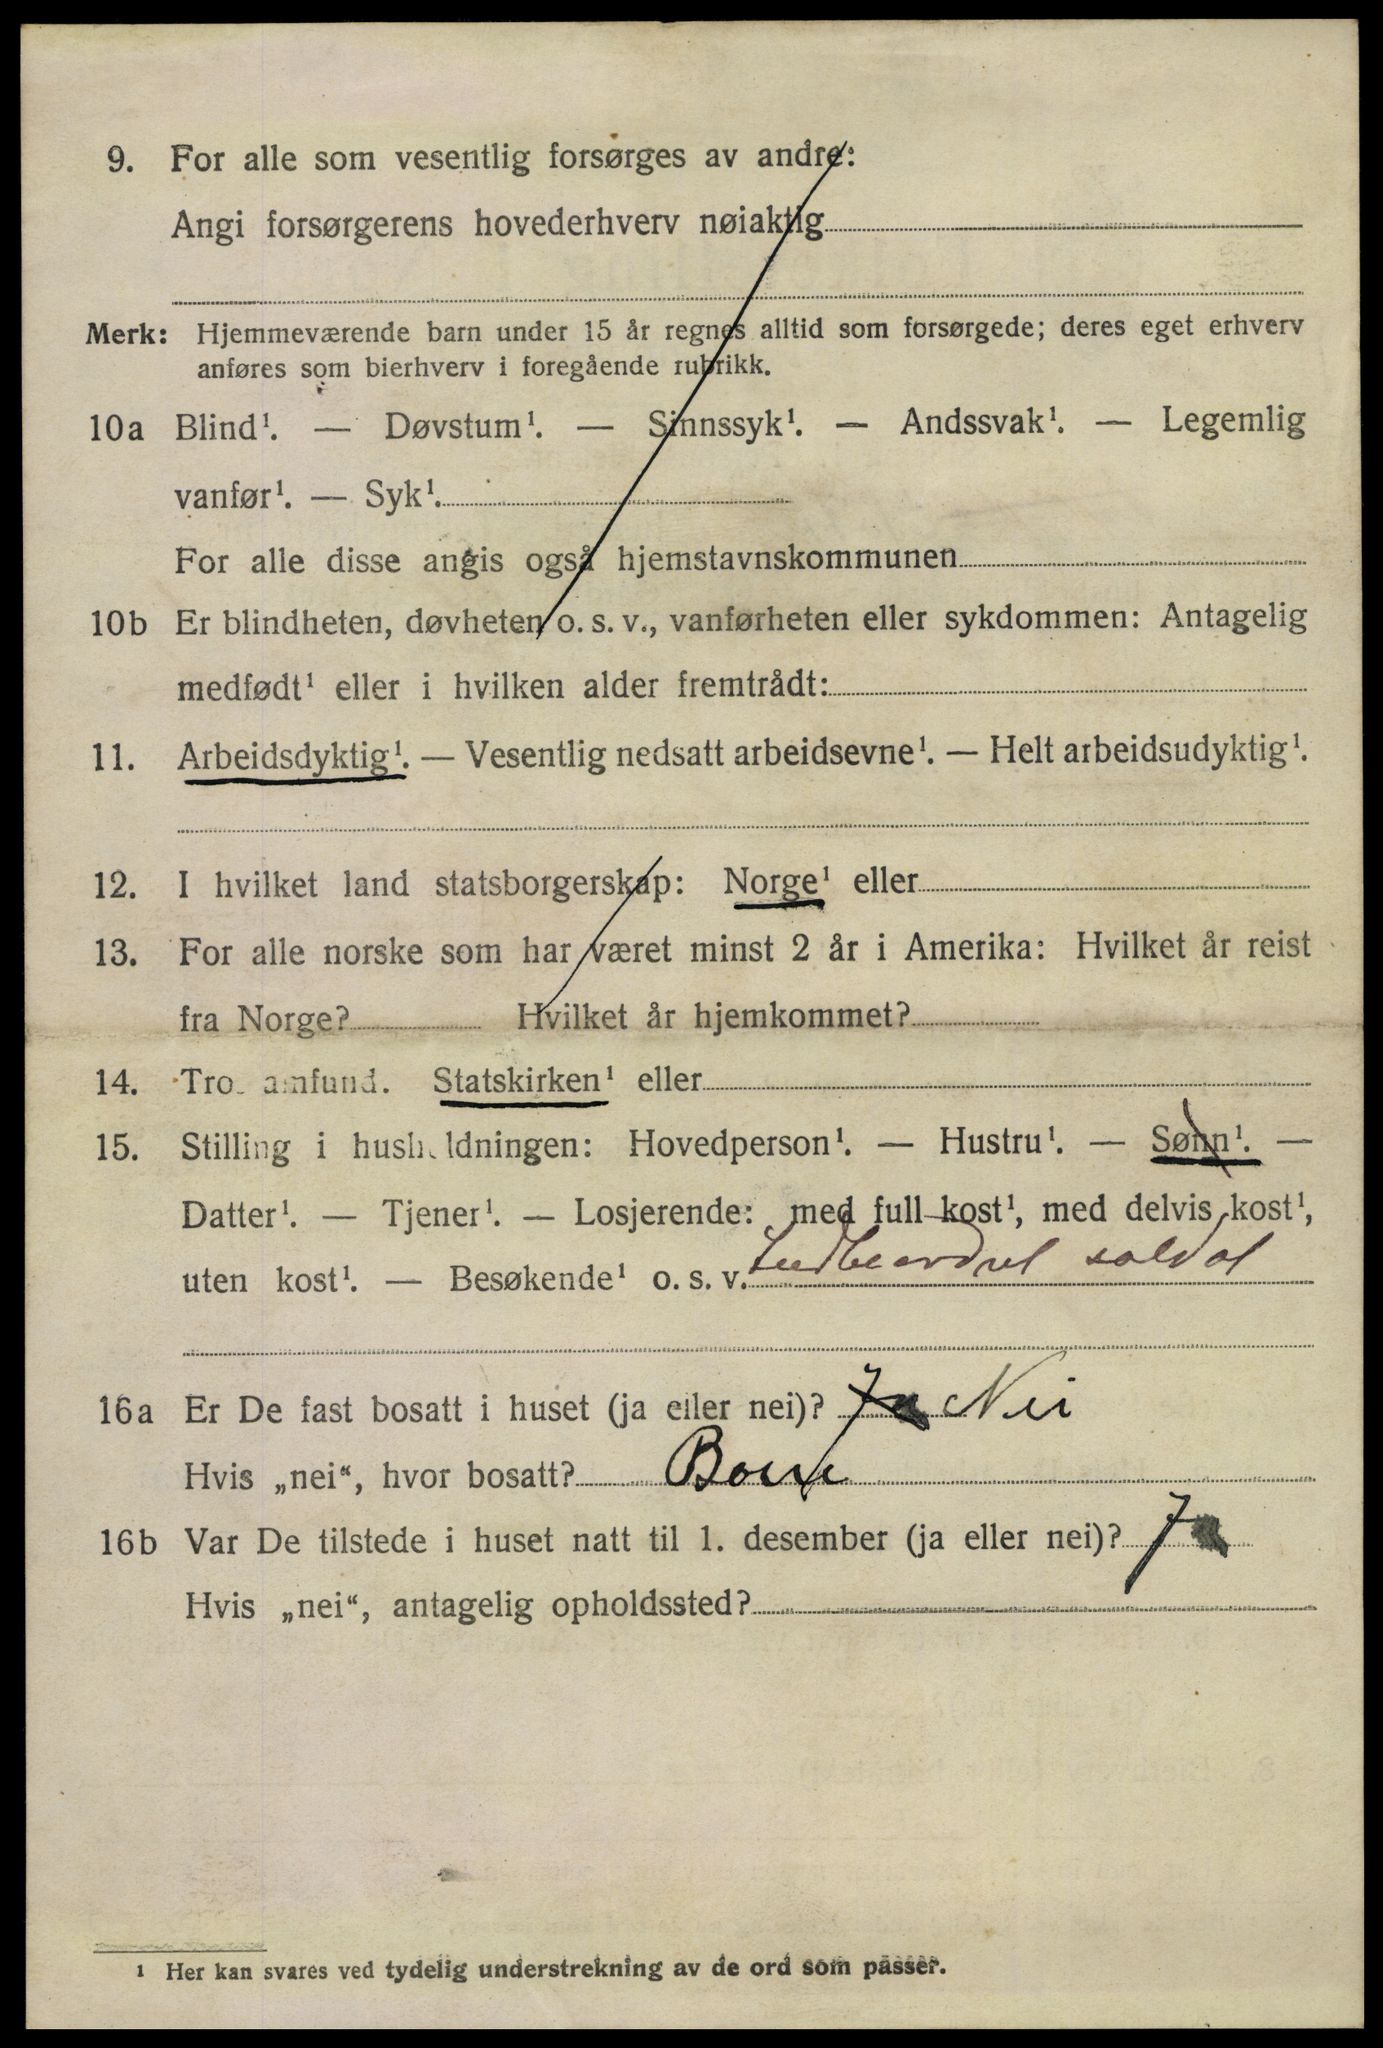 9. For alle som vesentlig forsørges av andre:
Angi forsørgerens hovederhverv nøiaktig
Merk: Hjemmeværende barn under 15 år regnes alltid som forsørgede; deres eget erhverv
anføres som bierhverv i foregående rubrikk.
10a Blind¹. — Døvstum¹. — Sinnssyk¹. — Andssvak¹. — Legemlig
vanfør¹. — Syk¹.
For alle disse angis også hjemstavnskommunen
10b Er blindheten, døvheten o. s. v., vanførheten eller sykdommen: Antagelig
medfødt¹ eller i hvilken alder fremtrådt:
11. Arbeidsdyktig¹. — Vesentlig nedsatt arbeidsevne¹. — Helt arbeidsudyktig¹.
12. I hvilket land statsborgerskap: Norge¹ eller
13. For alle norske som har været minst 2 år i Amerika: Hvilket år reist
fra Norge? Hvilket år hjemkommet?
14. Trossamfund. Statskirken¹ eller
15. Stilling i husholdningen: Hovedperson¹. — Hustru¹. — Sønn¹. —
Datter¹. — Tjener¹. — Losjerende: med full kost¹, med delvis kost¹,
uten kost¹. — Besøkende¹ o. s. v. soldat
16a Er De fast bosatt i huset (ja eller nei)? Ja Nei
Hvis „nei“, hvor bosatt?
16b Var De tilstede i huset natt til 1. desember (ja eller nei)? Ja
Hvis „nei“, antagelig opholdssted?
1 Her kan svares ved tydelig understrekning av de ord som passer.